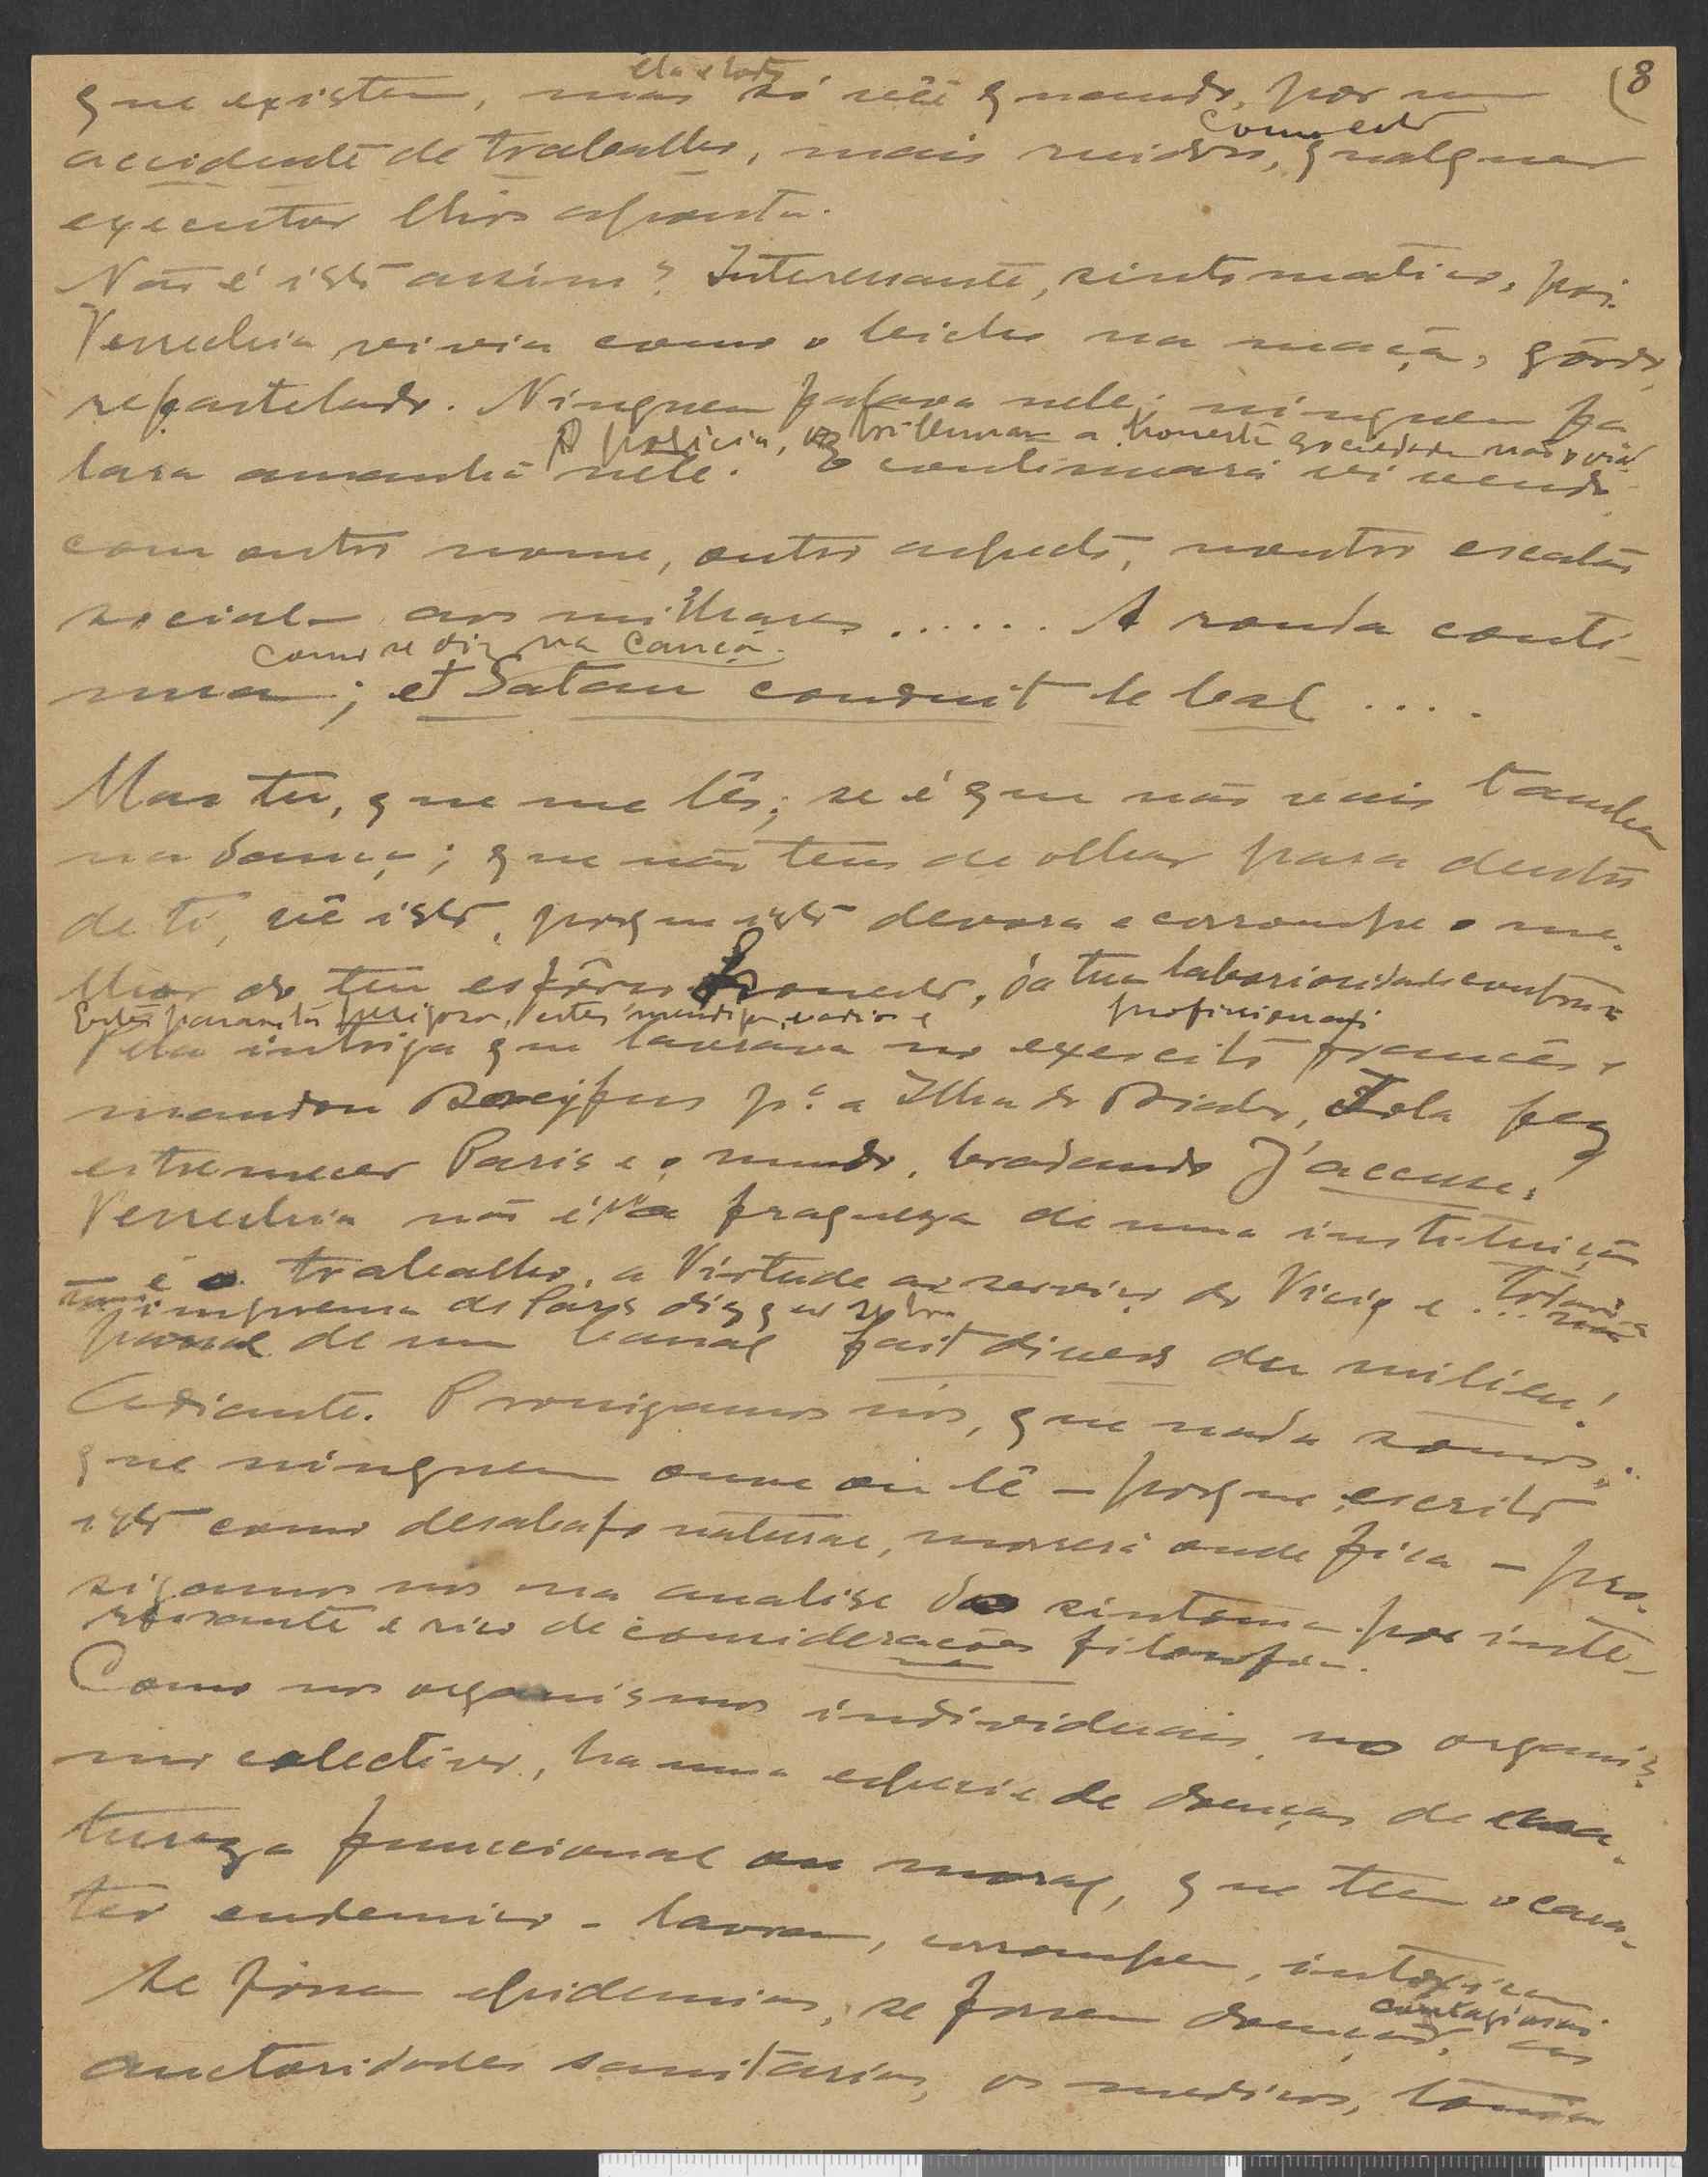 (8
ela e todos
que existem, mas só vêi quando, por um
como este
accidente de trabalho, mais ruidoso, qualquer
executor lhos aponta.
Não é isto assim? Interessante, sintomatico, pois
Verruchia vivia como o bicho na maçã, gôrdo,
refastelado. Ninguem falava nele; ninguem fa
lara amanhã nele. E continuará vivendo
A policia, os tribunaes a honesta sociedade não o viu
com outro nome, outro aspecto, noutro escalão
social - aos milhares ...... A ronda conti-
como se diz na canção.
nua; et Satan conduit le bal ....
Mas tu, que me lês; se é que não vais tambem
na dança; que não tens de olhar para dentro
de ti, vê isto, porque isto devora e corrompe o me-
lhor do teu esfôrço honesto, da tua laboriosidade
Estes parasitas perigosos, estes mendigos, vadios e profissionais
Pela intriga que lavrava no exercito francês e
mandou Dreyfus pª. a Ilha do Diabo, Zola fez
estremecer Paris e o mundo, bradando J'accuse!
Verruchia não é a fraqueza de uma instituição
é o trabalho, a Virtude ao serviço do Vicio e ... Todavia a
imprensa de Paris diz que se tra
de um banal fait divers du milieu!
Adiante. Prossigamos nós, que nada somos;
que ninguem ouve ou lê - porque escrito
isto como desabafo natural, morrerá onde fica - pro-
sigamos nós na analise do sintoma por inte-
ressante e rico de considerações filosoficas.
Como nos organismos individuais, no organis-
mo colectivo, ha uma especie de doenças de na-
tureza funcional ou moral, que teem o cara-
ter endemico - lavram, corrompem, intoxicam
contagiosas
Se fôssem epidemias, se fossem doenças, as
auctoridades sanitarias, os medicos,